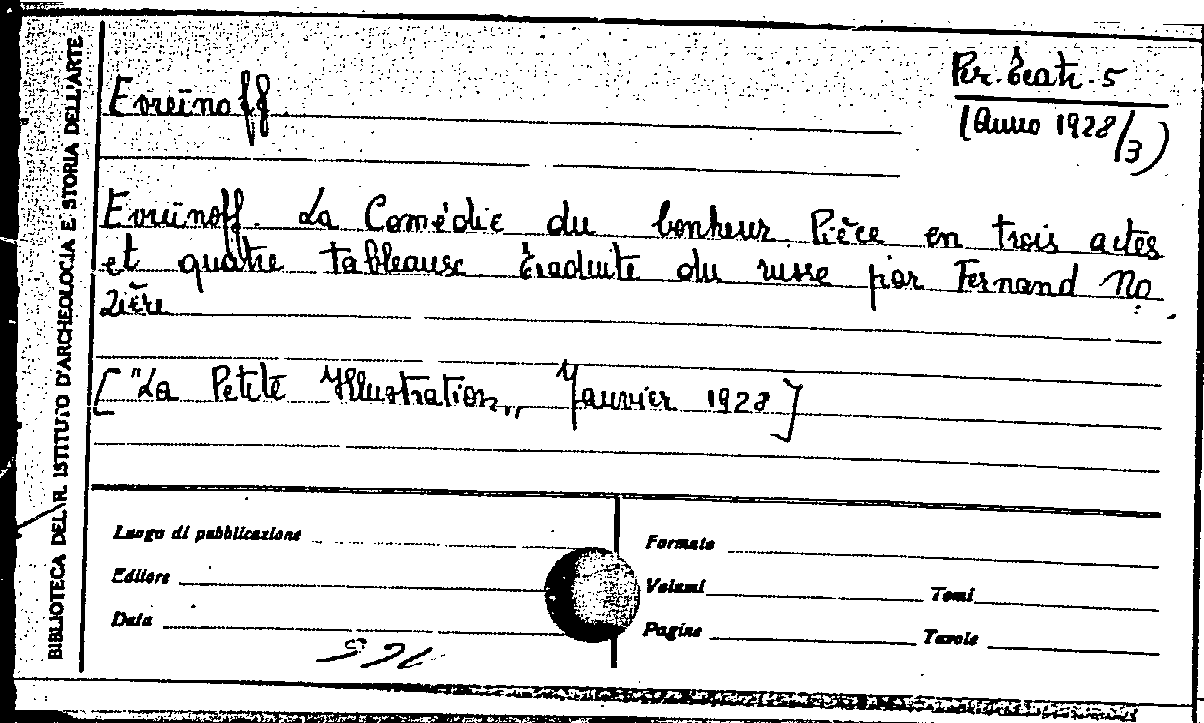 BIBLIOTECA DEL R. ISTITUTO D'ARCHEOLOGIA E STORIA DELL'ARTE
Evreïnoff.
Per. Teatr. 5
(Anno 1928/3)
Evreïnoff. La Comédie du bonheur. Pièce en trois actes
et quatre tableaux traduite du russe par Fernand No
zière
["La Petite Illustration„ Janvier 1928]
Luogo di pubblicazione
Formato
Editore
Volumi Tomi
Data
Pagine Tavole